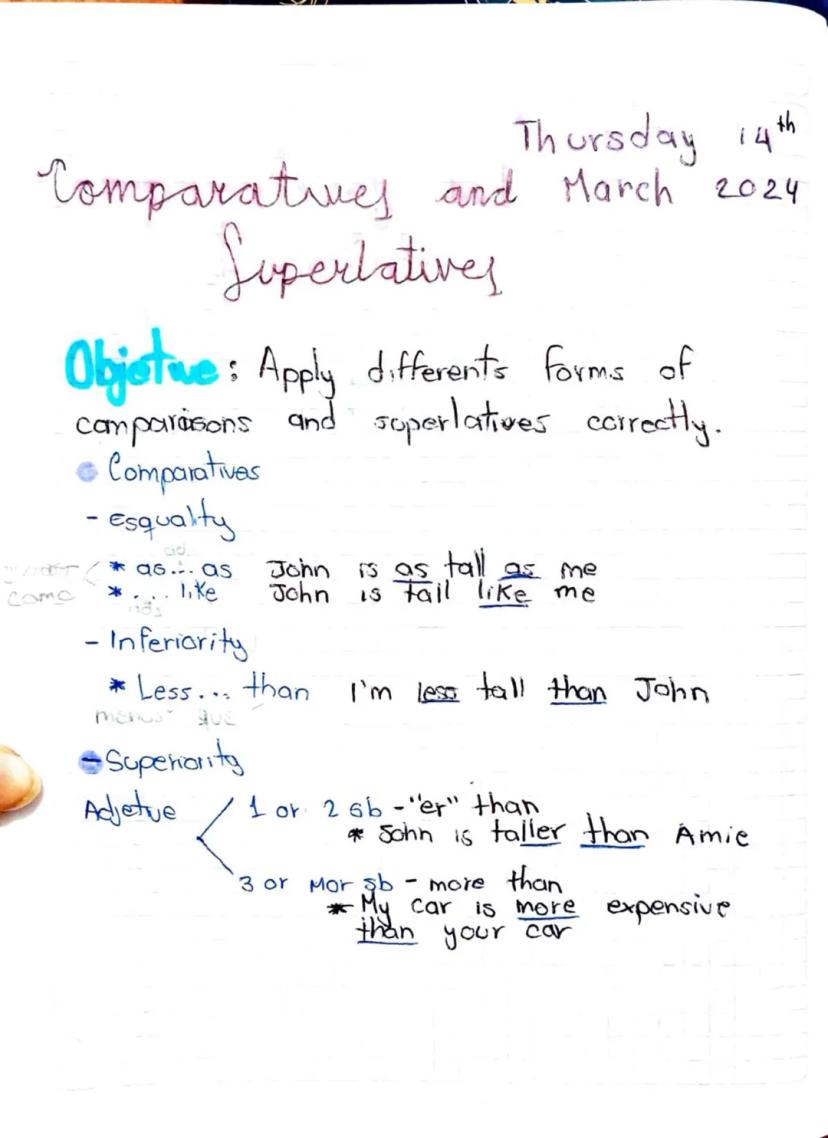 Thursday 14th
Comparatives and March 2024
Superlatives
Objetive: Apply differents forms of
comparaisons and superlatives correctly.
Comparatives
- Esquality
ad.
* as... as John is as tall as me
* ... like John is tall like me
como
- Inferiority
* Less... than I'm less tall than John
menos que
- Superiority
Adjetive 1 or 2 sb - "er" than
* John is taller than Amie
3 or Mor sb - more than
* My car is more expensive
than your car